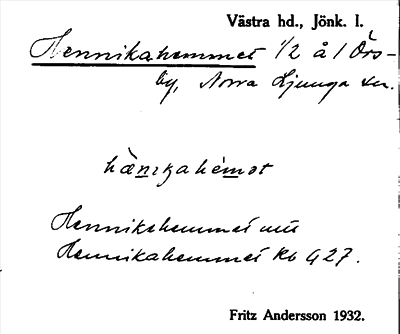 Västra hd., Jönk. l.
Hennikahemmet 1/2 å 1 Örs-
by, Norra Ljunga sn.
hä̀nikahémət
Hennikehemmet
Hennikahemmet Kb 427.
Fritz Andersson 1932.